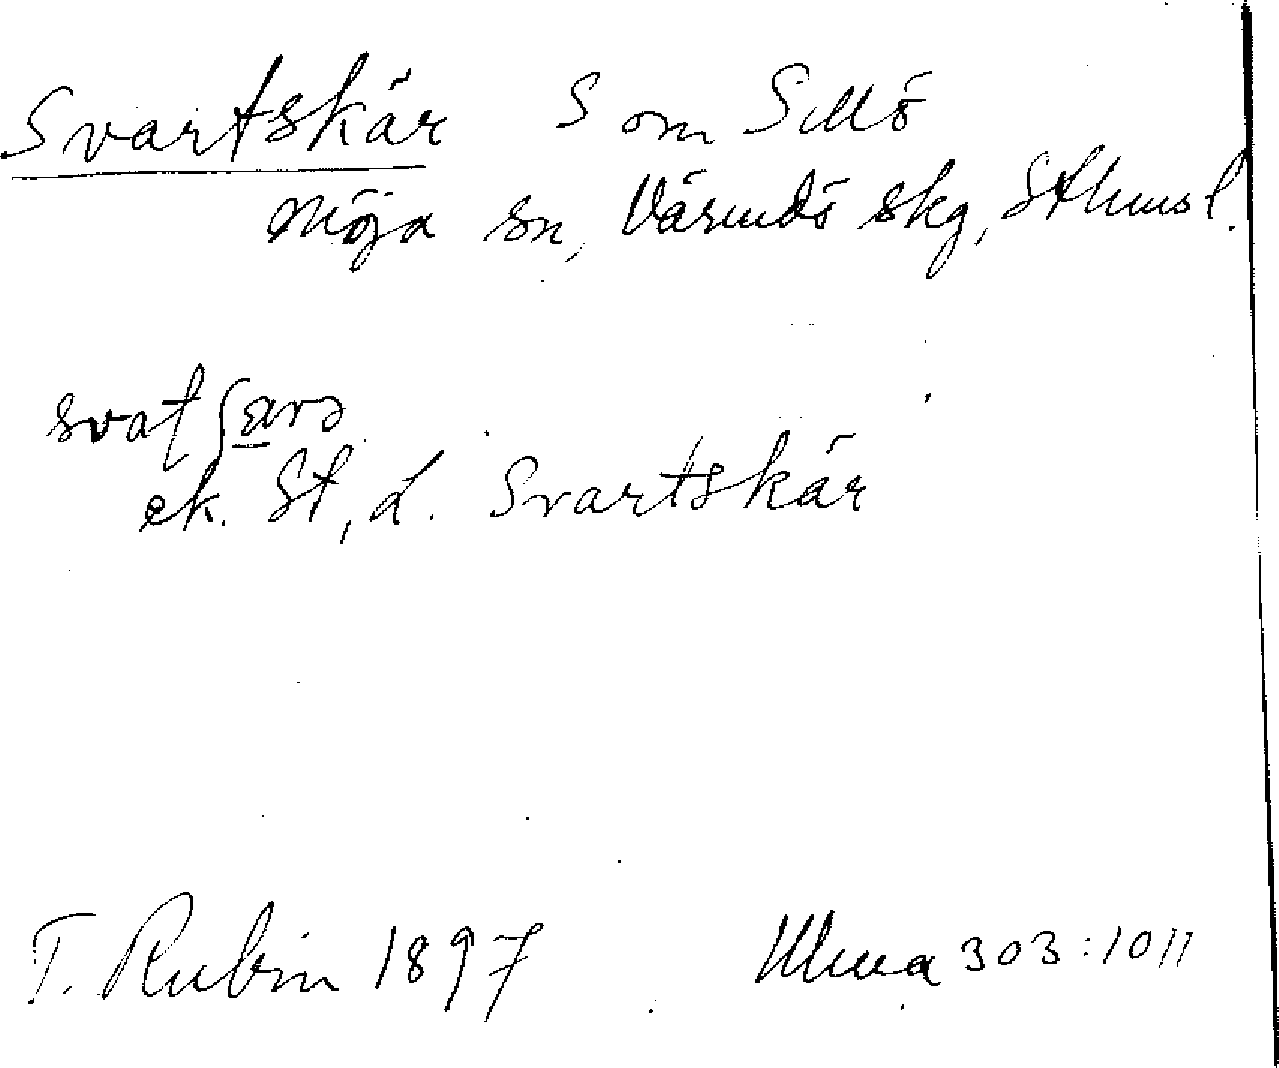 Svartskär S om Sillö
Möja sn, Värmdö skg, Sthmsl.
svat
ek. St, L. Svartskär
T. Rubin 1897 Ulma 303:1011